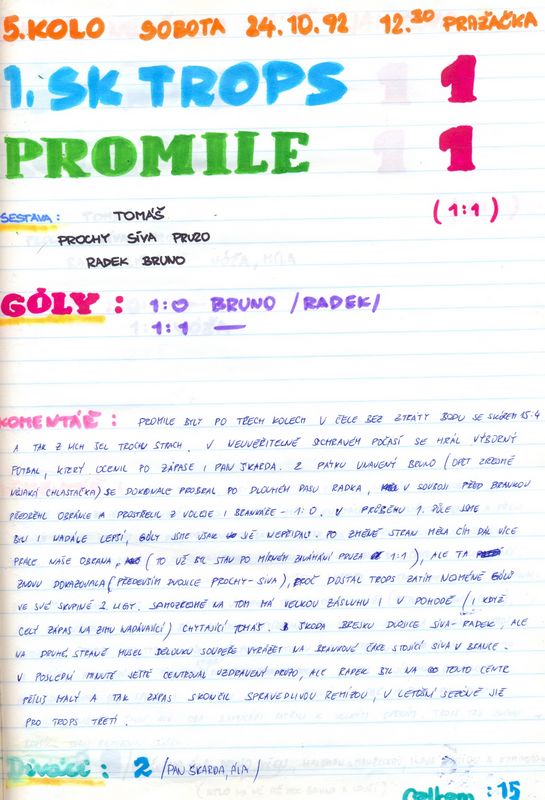 5. KOLO SOBOTA 24.10.92 12.30 PRAŽAČKA
1. SK TROPS 1
PROMILE 1
SESTAVA: TOMÁŠ (1:1)
PROCHY SÍVA PRUZO
RADEK BRUNO
GÓLY: 1:0 BRUNO /RADEK/
1:1 —
KOMENTÁŘ: PROMILE BYLY PO TŘECH KOLECH V ČELE BEZ ZTRÁTY BODU SE SKÓREM 15:4
A TAK Z NICH ŠEL TROCHU STRACH. V NEUVĚŘITELNĚ SYCHRAVÉM POČASÍ SE HRÁL VÝBORNÝ
FOTBAL, KTERÝ OCENIL PO ZÁPASE I PAN ŠKARDA. Z PÁTKU UNAVENÝ BRUNO (OPĚT ZŘEJMĚ
NĚJAKÁ CHLASTAČKA) SE DOKONALE PROBRAL PO DLOUHÉM PASU RADKA, V SOUBOJI PŘED BRANKOU
PŘEDBĚHL OBRÁNCE A PROSTŘELIL Z VOLEJE I BRANKÁŘE - 1:0. V PRŮBĚHU 1. PŮLE JSME
BYLI I NADÁLE LEPŠÍ, GÓLY JSME VŠAK UŽ NEPŘIDALI. PO ZMĚNĚ STRAN MĚLA ČÍM DÁL VÍCE
PRÁCE NAŠE OBRANA, (TO UŽ BYL STAV PO MÍRNÉM ZAVÁHÁNÍ PRUZA 1:1), ALE TA
ZNOVU DOKAZOVALA (PŘEDEVŠÍM DVOJICE PROCHY-SÍVA), PROČ DOSTAL TROPS ZATÍM NEJMÉNĚ GÓLŮ
VE SVÉ SKUPINĚ 2. LIGY. SAMOZŘEJMĚ NA TOM MÁ VELKOU ZÁSLUHU I V POHODĚ (I KDYŽ
CELÝ ZÁPAS NA ZIMU NADÁVAJÍCÍ) CHYTAJÍCÍ TOMÁŠ. ŠKODA BREJKU DVOJICE SÍVA-RADEK, ALE
NA DRUHÉ STRANĚ MUSEL DĚLOVKU SOUPEŘE VYRÁŽET NA BRANKOVÉ ČÁŘE STOJÍCÍ SÍVA V BRANCE.
V POSLEDNÍ MINUTĚ JEŠTĚ CENTROVAL UZDRAVENÝ PRUZO, ALE RADEK BYL NA TENTO CENTR
PŘÍLIŠ MALÝ A TAK ZÁPAS SKONČIL SPRAVEDLIVOU REMÍZOU, V LETOŠNÍ SEZÓNĚ JIŽ
PRO TROPS TŘETÍ.
Diváci: 2 /PAN ŠKARDA, ALA/
Celkem: 15